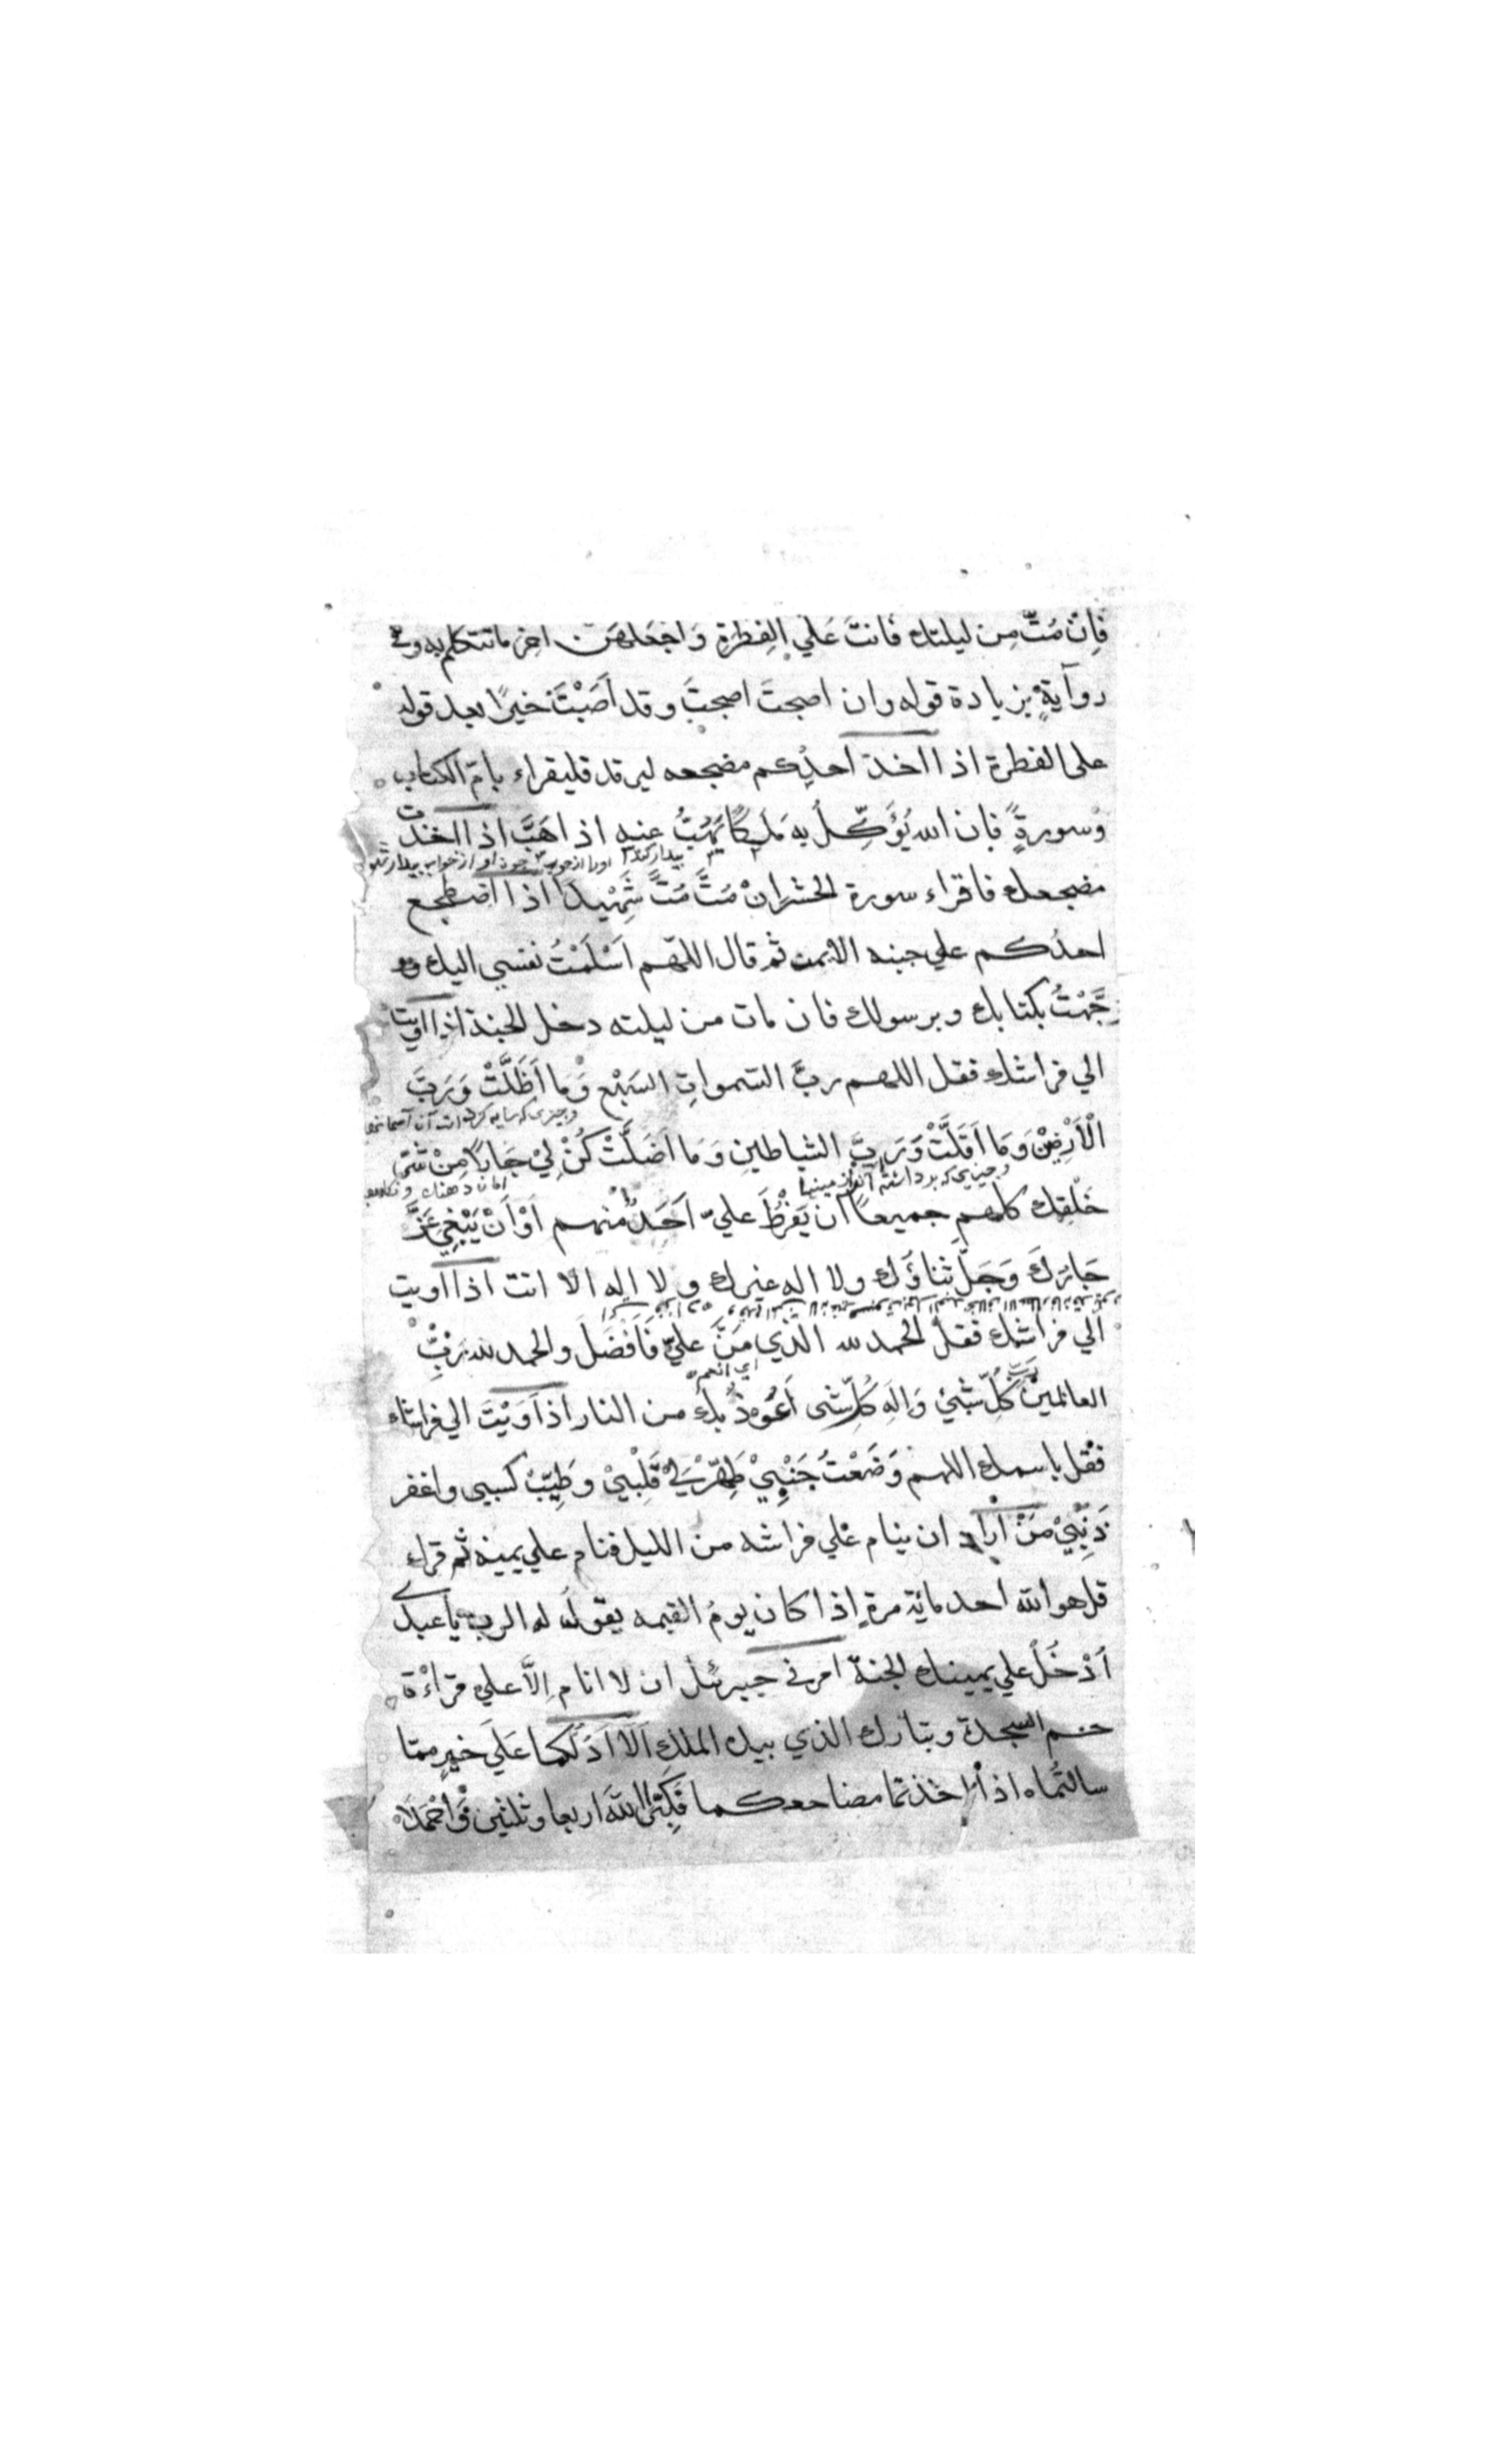 فَاِنْ مُتَّ مِن ليلتك فَانتَ عَلَي الفِطرَةِ وَاجْعَلهنّ اٰخِر ماتتكلم به وفي
روآيةٍ بزيادة قوله وان اصبحتَ اصبحتَ وقد اَصَبْتَ خيرًا بعد قوله
على الفطرة اذا اخذ احدُكم مضجعه ليرقد فليقراء بامّ الكتاب
وسورةً فان الله يُؤَكِّلُ به مَلَكًا يَهُبُّ عنه اذا هَبَّ اذا اخذت
بيدار كند اورا از خواب چون او از خواب بيدار شود
مضجعك فاقراء سورة الحشر اِنْ مُتَّ مُتَّ شَهِيْدًا اذا اضطجع
احدُكم علي جنبه الايمن ثم قال اللّهم اَسْلَمْتُ نفسي اليك و
وَجَّهْتُ بكتابك وبرسولك فان مات من ليلته دخل الجنة اذا اويت
الي فراشك فقل اللهم ربَّ السّموات السَبْع وَمَا اَظَلَّتْ وَرَبَّ
وچيزي كه سايه كرده است آن آسمانها
الْاَرْضِيْنَ وَمَا اَقَلَّتْ وَرَبَّ الشياطين وَمَا اَضَلَّتْ كُنْ لِيْ جَارًا مِنْ شَرِّ
وچيزي كه برداشته آنرا زمينها
خَلْقِك كلهم جميعًا اَن يَفْرُطَ عليّ اَحَدٌ منهم اَوْ اَنْ يَبْغِيَ عَزَّ
جَارُكَ وَجَلَّ ثناؤُك ولا اله غيرك ولا اله الا انت اذا اويت
الي فراشك فقل الحمد لله الذي مَنَّ عليّ فَاَفْضَلَ والحمد لله رَبِّ
اي انعم
العالمين رَبِّ كُلِّ شَيْءٍ وَاِلٰهِ كُلِّ شى اَعُوذُ بك من النار اذا اَوَيْتَ الي فراشك
فقل باسمك اللهم وَضَعْتُ جَنْبِيْ طَهِّرْ لِيْ قَلْبِيْ وطَيِّبْ كسبي واغفر
ذَنْبِيْ مَنْ اراد ان ينام علي فراشه من الليل فنام علي يمينه ثم قراء
قل هو الله احد مائة مرةٍ اذا كان يومُ القيمه يقولُ له الرب يا عبدي
اُدْخُلْ علي يمينك الجنة امرني جبرئيل ان لا انام اِلَّا علي قراءة
حم السجدة وتبارك الذي بيده الملك اَلَا اَدُلُّكما عَلَي خيرٍ ممّا
سالتُماه اذا اخذتما مضاجعكما فَكَبِّرَا اللهَ اربعا وثلثين وَاحْمَدَاه